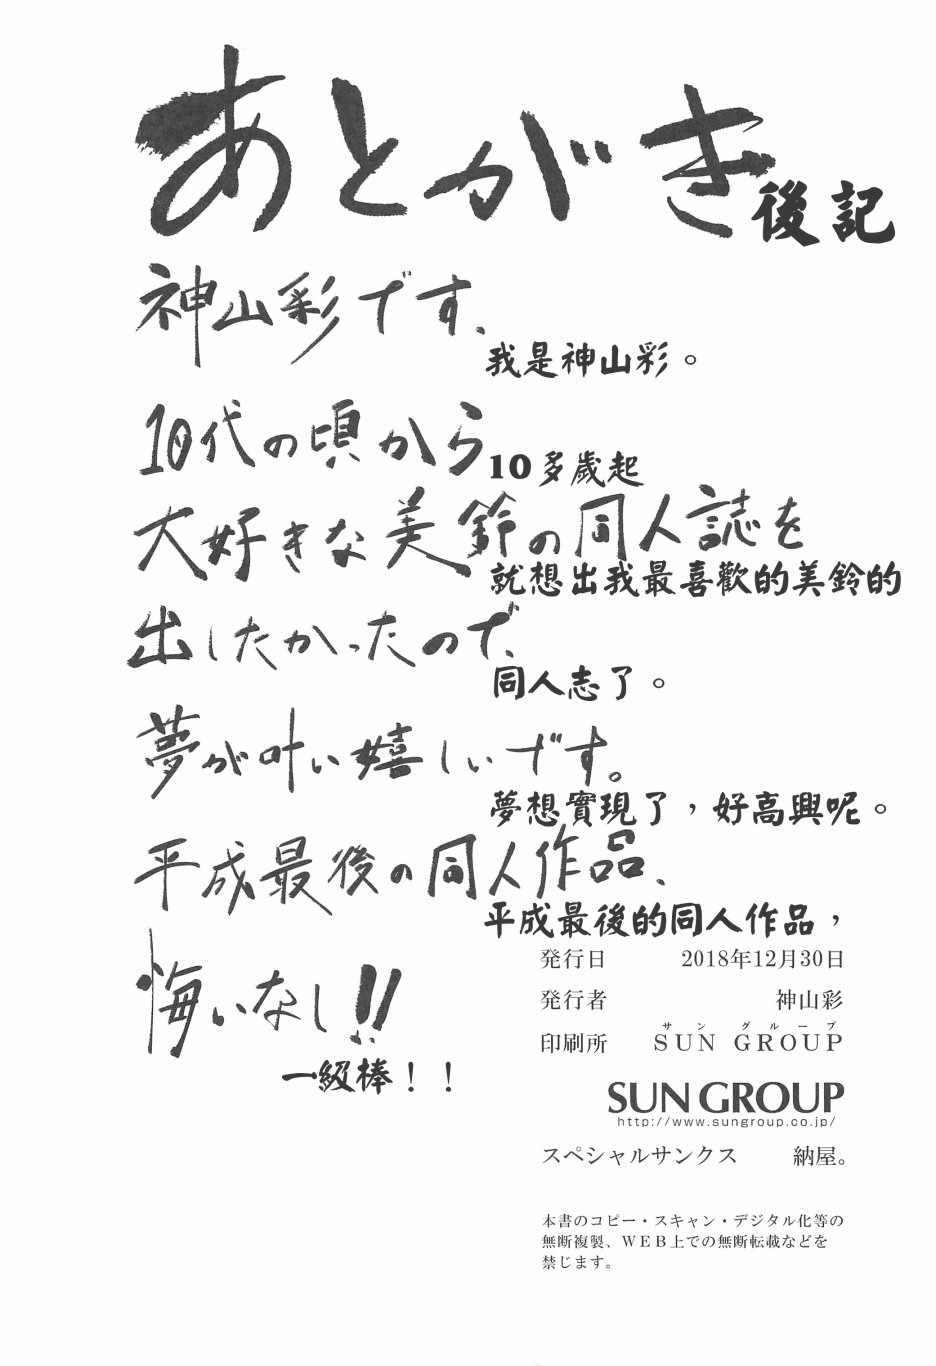 あとがき
後記
神山彩です、
我是神山彩。
10代の頃から
10多歲起
大好きな美鈴の同人誌を
就想出我最喜歡的美鈴的
出したかったので、
同人志了。
夢が叶い嬉しいです。
夢想實現了，好高興呢。
平成最後の同人作品、
平成最後的同人作品，
悔いなし!!
一級棒！！
発行日 2018年12月30日
発行者 神山彩
サングループ
印刷所 SUN GROUP
SUN GROUP
http://www.sungroup.co.jp/
スペシャルサンクス 納屋。
本書のコピー・スキャン・デジタル化等の
無断複製、WEB上での無断転載などを
禁じます。